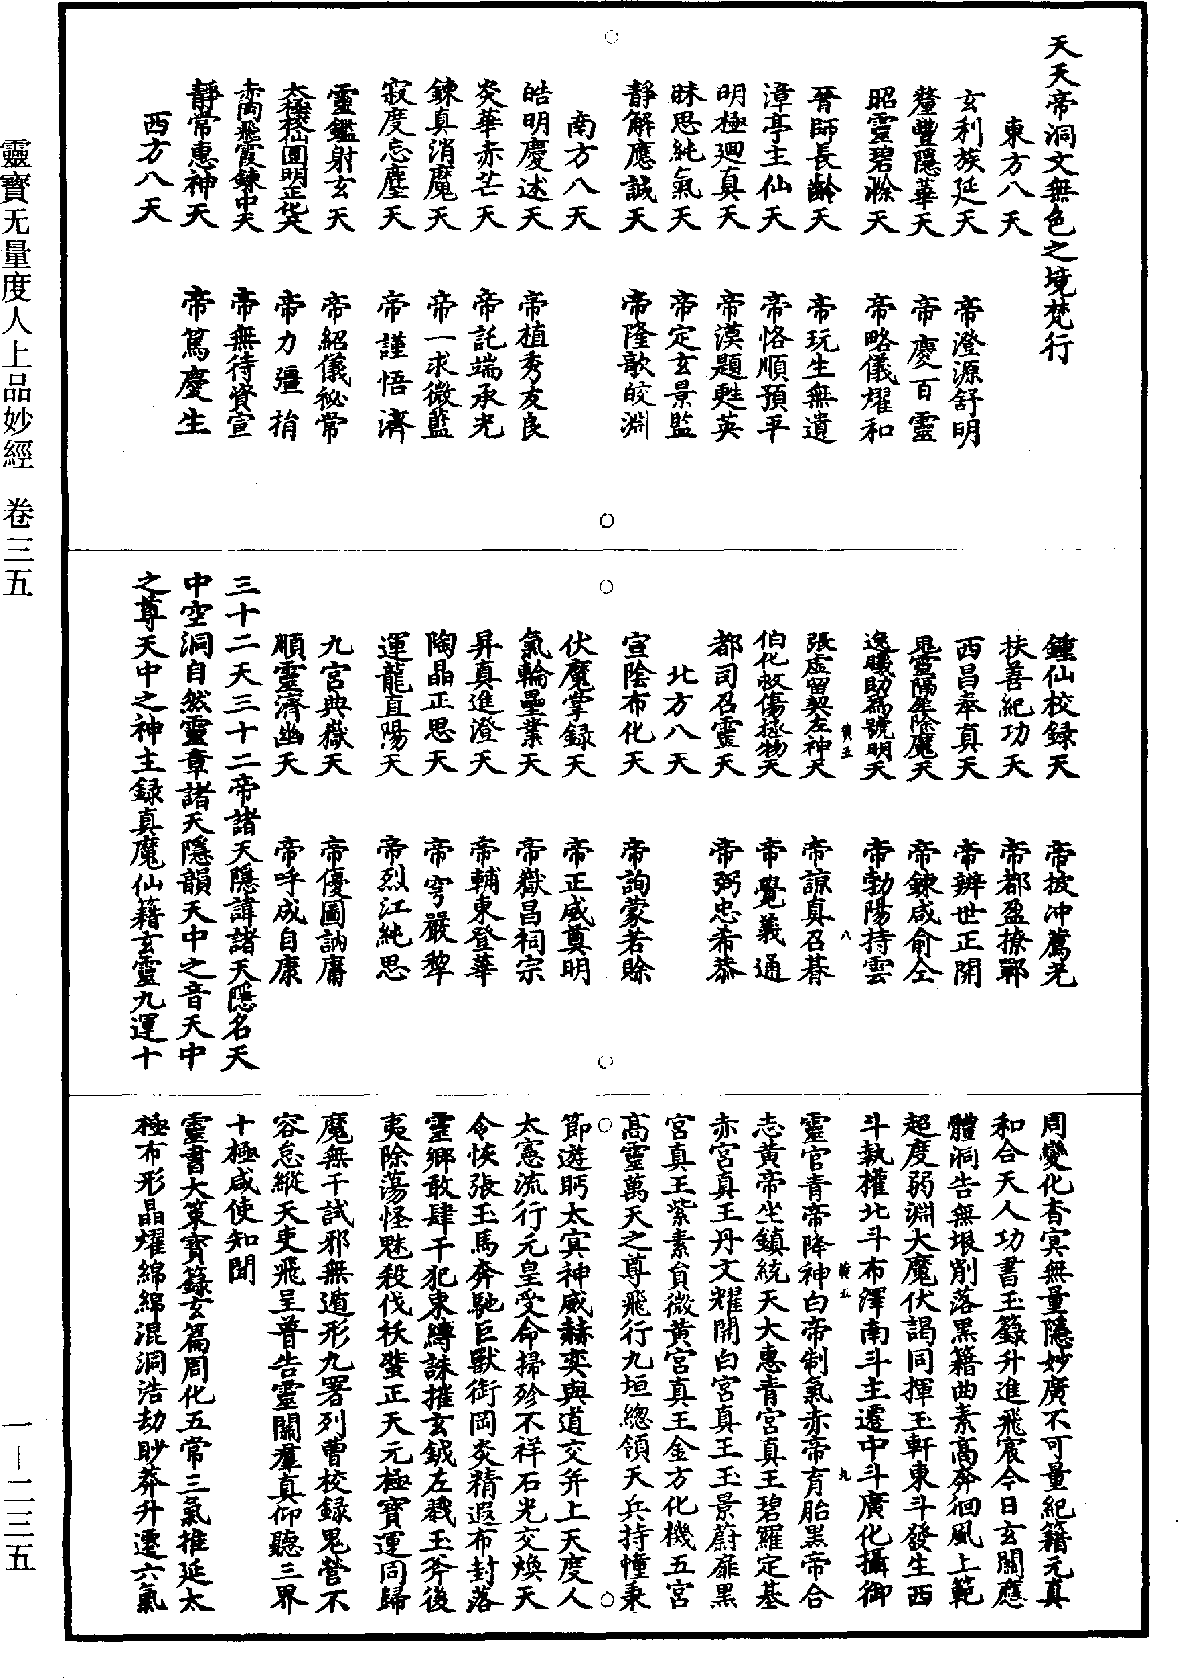 靈寶无量度人上品妙經 卷三五
一—二三五
天天帝洞文無色之境梵行
東方八天
玄利族延天 帝澄源舒明
釐豐隱華天 帝慶百靈
昭靈碧滌天 帝略儀耀和
晉師長齡天 帝玩生無遺
漳亭主仙天 帝恪順預平
明極迴真天 帝漠題甦英
昧思純氣天 帝定玄景監
靜解應誠天 帝隆歆皎淵
南方八天
皓明慶述天 帝植秀友良
炎華赤芒天 帝託端承光
鍊真消魔天 帝一求微監
寂度忘塵天 帝謹悟濟
靈鑑射玄天 帝紹儀祕常
太極仙圓明正華天 帝力彊捎
赤尚飛霞鍊中天 帝無待資宣
靜常惠神天 帝篤慶生
西方八天
鍾仙校録天 帝披冲薦尧
扶善紀功天 帝都盈撩鄿
西昌奉真天 帝辨世正開
鬼靈陽星陰魔天 帝鍊咸俞仝
逸曦助爲號明天 帝勃陽持雲
黄五 八
張虛留契左神天 帝諒真召朞
伯化救傷拯物天 帝覺義通
都司召靈天 帝弼忠希恭
北方八天
宣陰布化天 帝詢蒙若賒
伏魔掌録天 帝正威奠明
氣輪壘業天 帝嶽昌祠宗
昇真進澄天 帝輔東登華
陶晶正思天 帝穹嚴犂
運龍直陽天 帝烈江純思
九宮典嶽天 帝優圖訥膺
順靈濟幽天 帝呼成自康
三十二天三十二帝諸天隱諱諸天隱名天
中空洞自然靈章諸天隱韻天中之音天中
之尊天中之神主録真魔仙籍玄靈九運十
周變化杳冥無量隱妙廣不可量紀籍元真
和合天人功書玉籙升進飛宸今日玄關應
體洞告無垠削落黑籍曲素高奔徊風上範
超度弱淵大魔伏謁同揮玉軒東斗發生西
斗執權北斗布澤南斗主遷中斗廣化攝御
黄五 九
靈官青帝降神白帝制氣赤帝育胎黑帝合
志黄帝坐鎮統天大惠青宮真王碧羅定基
赤宮真王丹文耀開白宮真王玉景蔚靡黑
宮真王紫素負微黄宮真王金方化機五宮
高靈萬天之尊飛行九垣總領天兵持幢秉
節遊眄太㝠神威赫奕與道交并上天度人
太憲流行元皇受命掃殄不祥石光交煥天
令恢張玉馬奔馳巨獸銜岡炎精遐布封落
靈鄉敢肆干犯束縛誅摧玄鉞左戮玉斧後
夷除蕩怪魅殺伐袄蠥正天元極寶運同歸
魔無干試邪無遁形九署列曹校録鬼營不
容怠縱天吏飛呈普告靈關羣真仰聽三界
十極咸使知聞
靈書大篆寶籙玄篇周化五常三氣推延太
極布形晶燿綿綿混洞浩劫眇莽升遷六氣